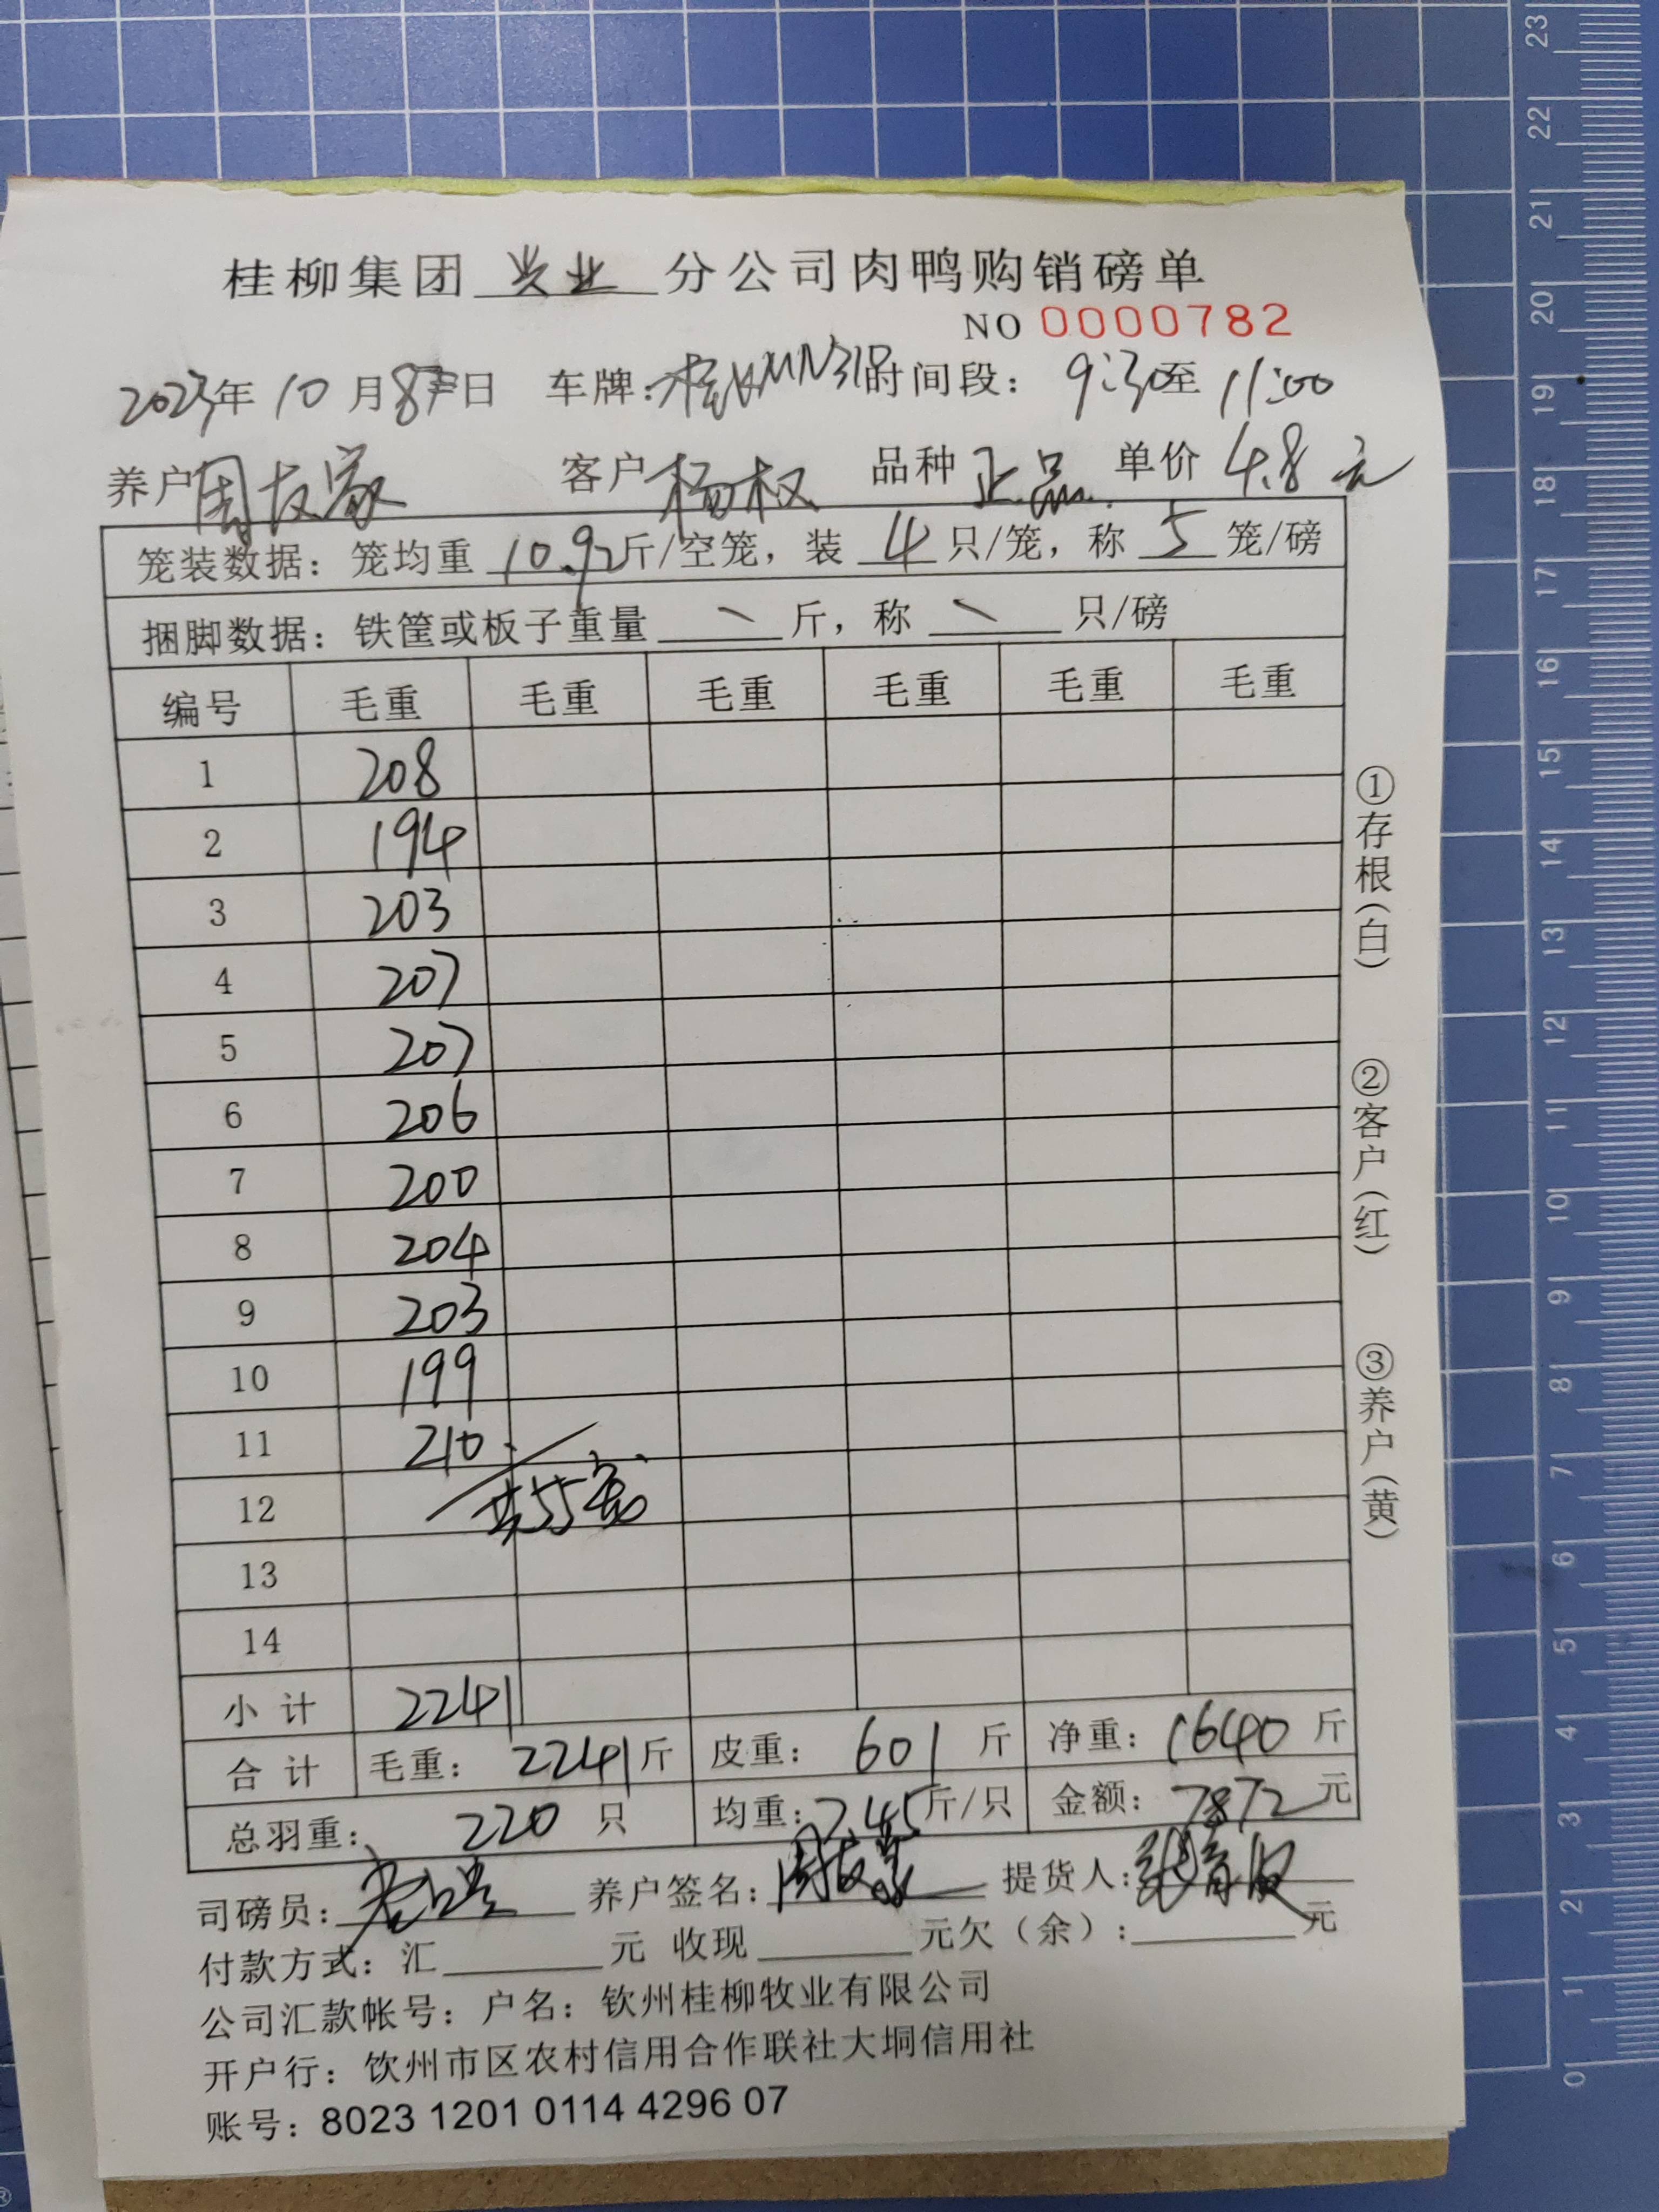 桂柳集团 兴业 分公司肉鸭购销磅单
NO 0000782
2023年 10 月 8 日 车牌: 时间段: 9:30至 11:00
养户 周友家 客户 杨权 品种 正品 单价 4.8 元
笼装数据: 笼均重 10.92 斤/空笼, 装 4 只/笼, 称 5 笼/磅
捆脚数据: 铁筐或板子重量 斤, 称 只/磅
编号 毛重 毛重 毛重 毛重 毛重 毛重
1 208
2 194
3 203
4 207
5 207
6 206
7 200
8 204
9 203
10 199
11 210
12 共55笼
13
14
小计 2241
合计 毛重: 2241斤 皮重: 601 斤 净重: 1640 斤
总羽重: 220 只 均重: 7.45斤/只 金额: 7872元
司磅员: 养户签名: 周友家 提货人:
付款方式: 汇 元 收现 元欠(余): 元
公司汇款帐号: 户名: 钦州桂柳牧业有限公司
开户行: 钦州市区农村信用合作联社大垌信用社
账号: 8023 1201 0114 4296 07
①存根(白)
②客户(红)
③养户(黄)
23
22
21
20
19
18
17
16
15
14
13
12
11
10
9
8
7
6
5
4
3
2
1
0